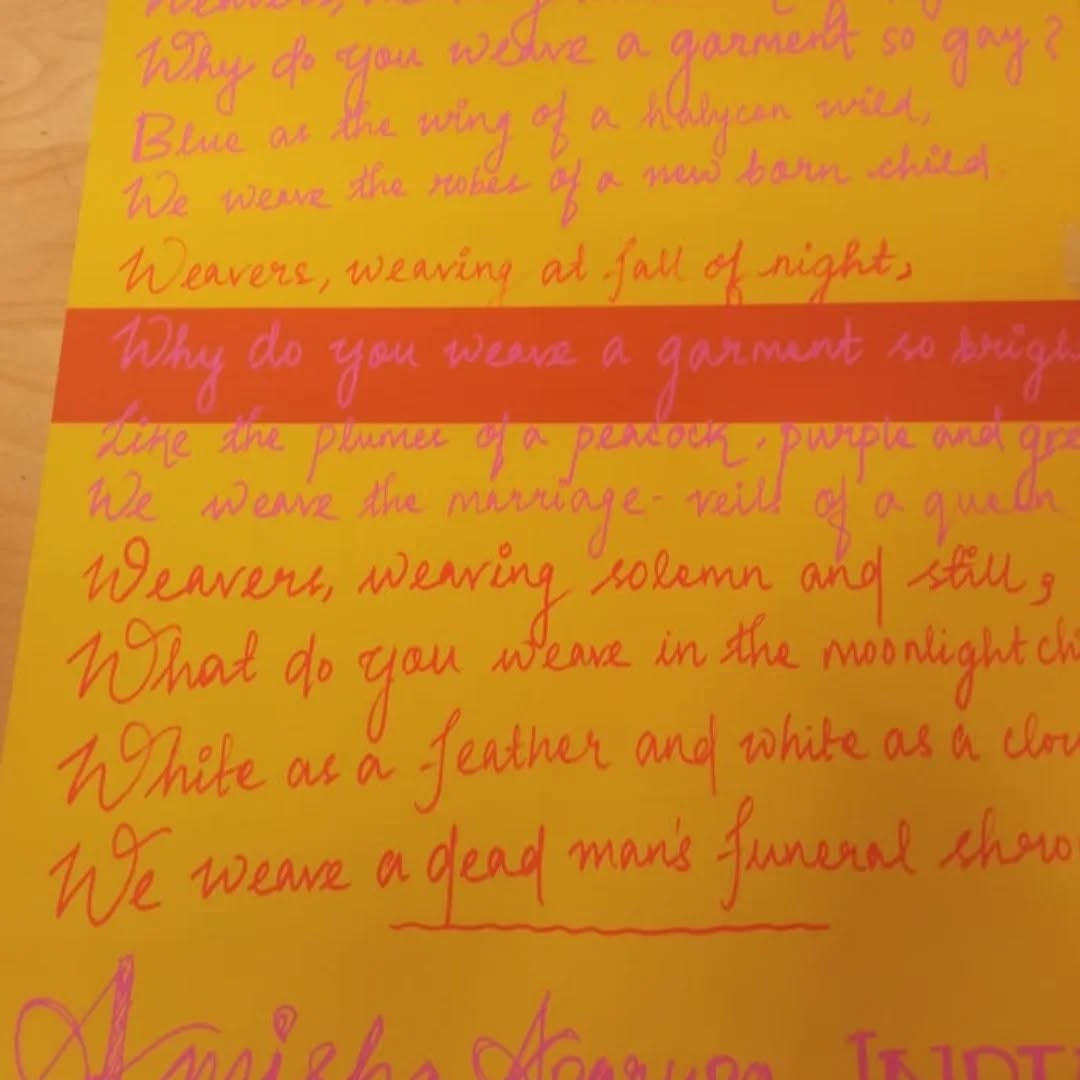 Weavers,
Why do you weave a garment so gay?
Blue as the wing of a halycon wild,
We weave the robes of a new born child.
Weavers, weaving at fall of night,
Why do you weave a garment so brigh
Like the plumes of a peacock, purple and gre
We weave the marriage-veils of a queen
Weavers, weaving solemn and still,
What do you weave in the moonlight chi
White as a feather and white as a clou
We weave a dead man's funeral shro
Amisha